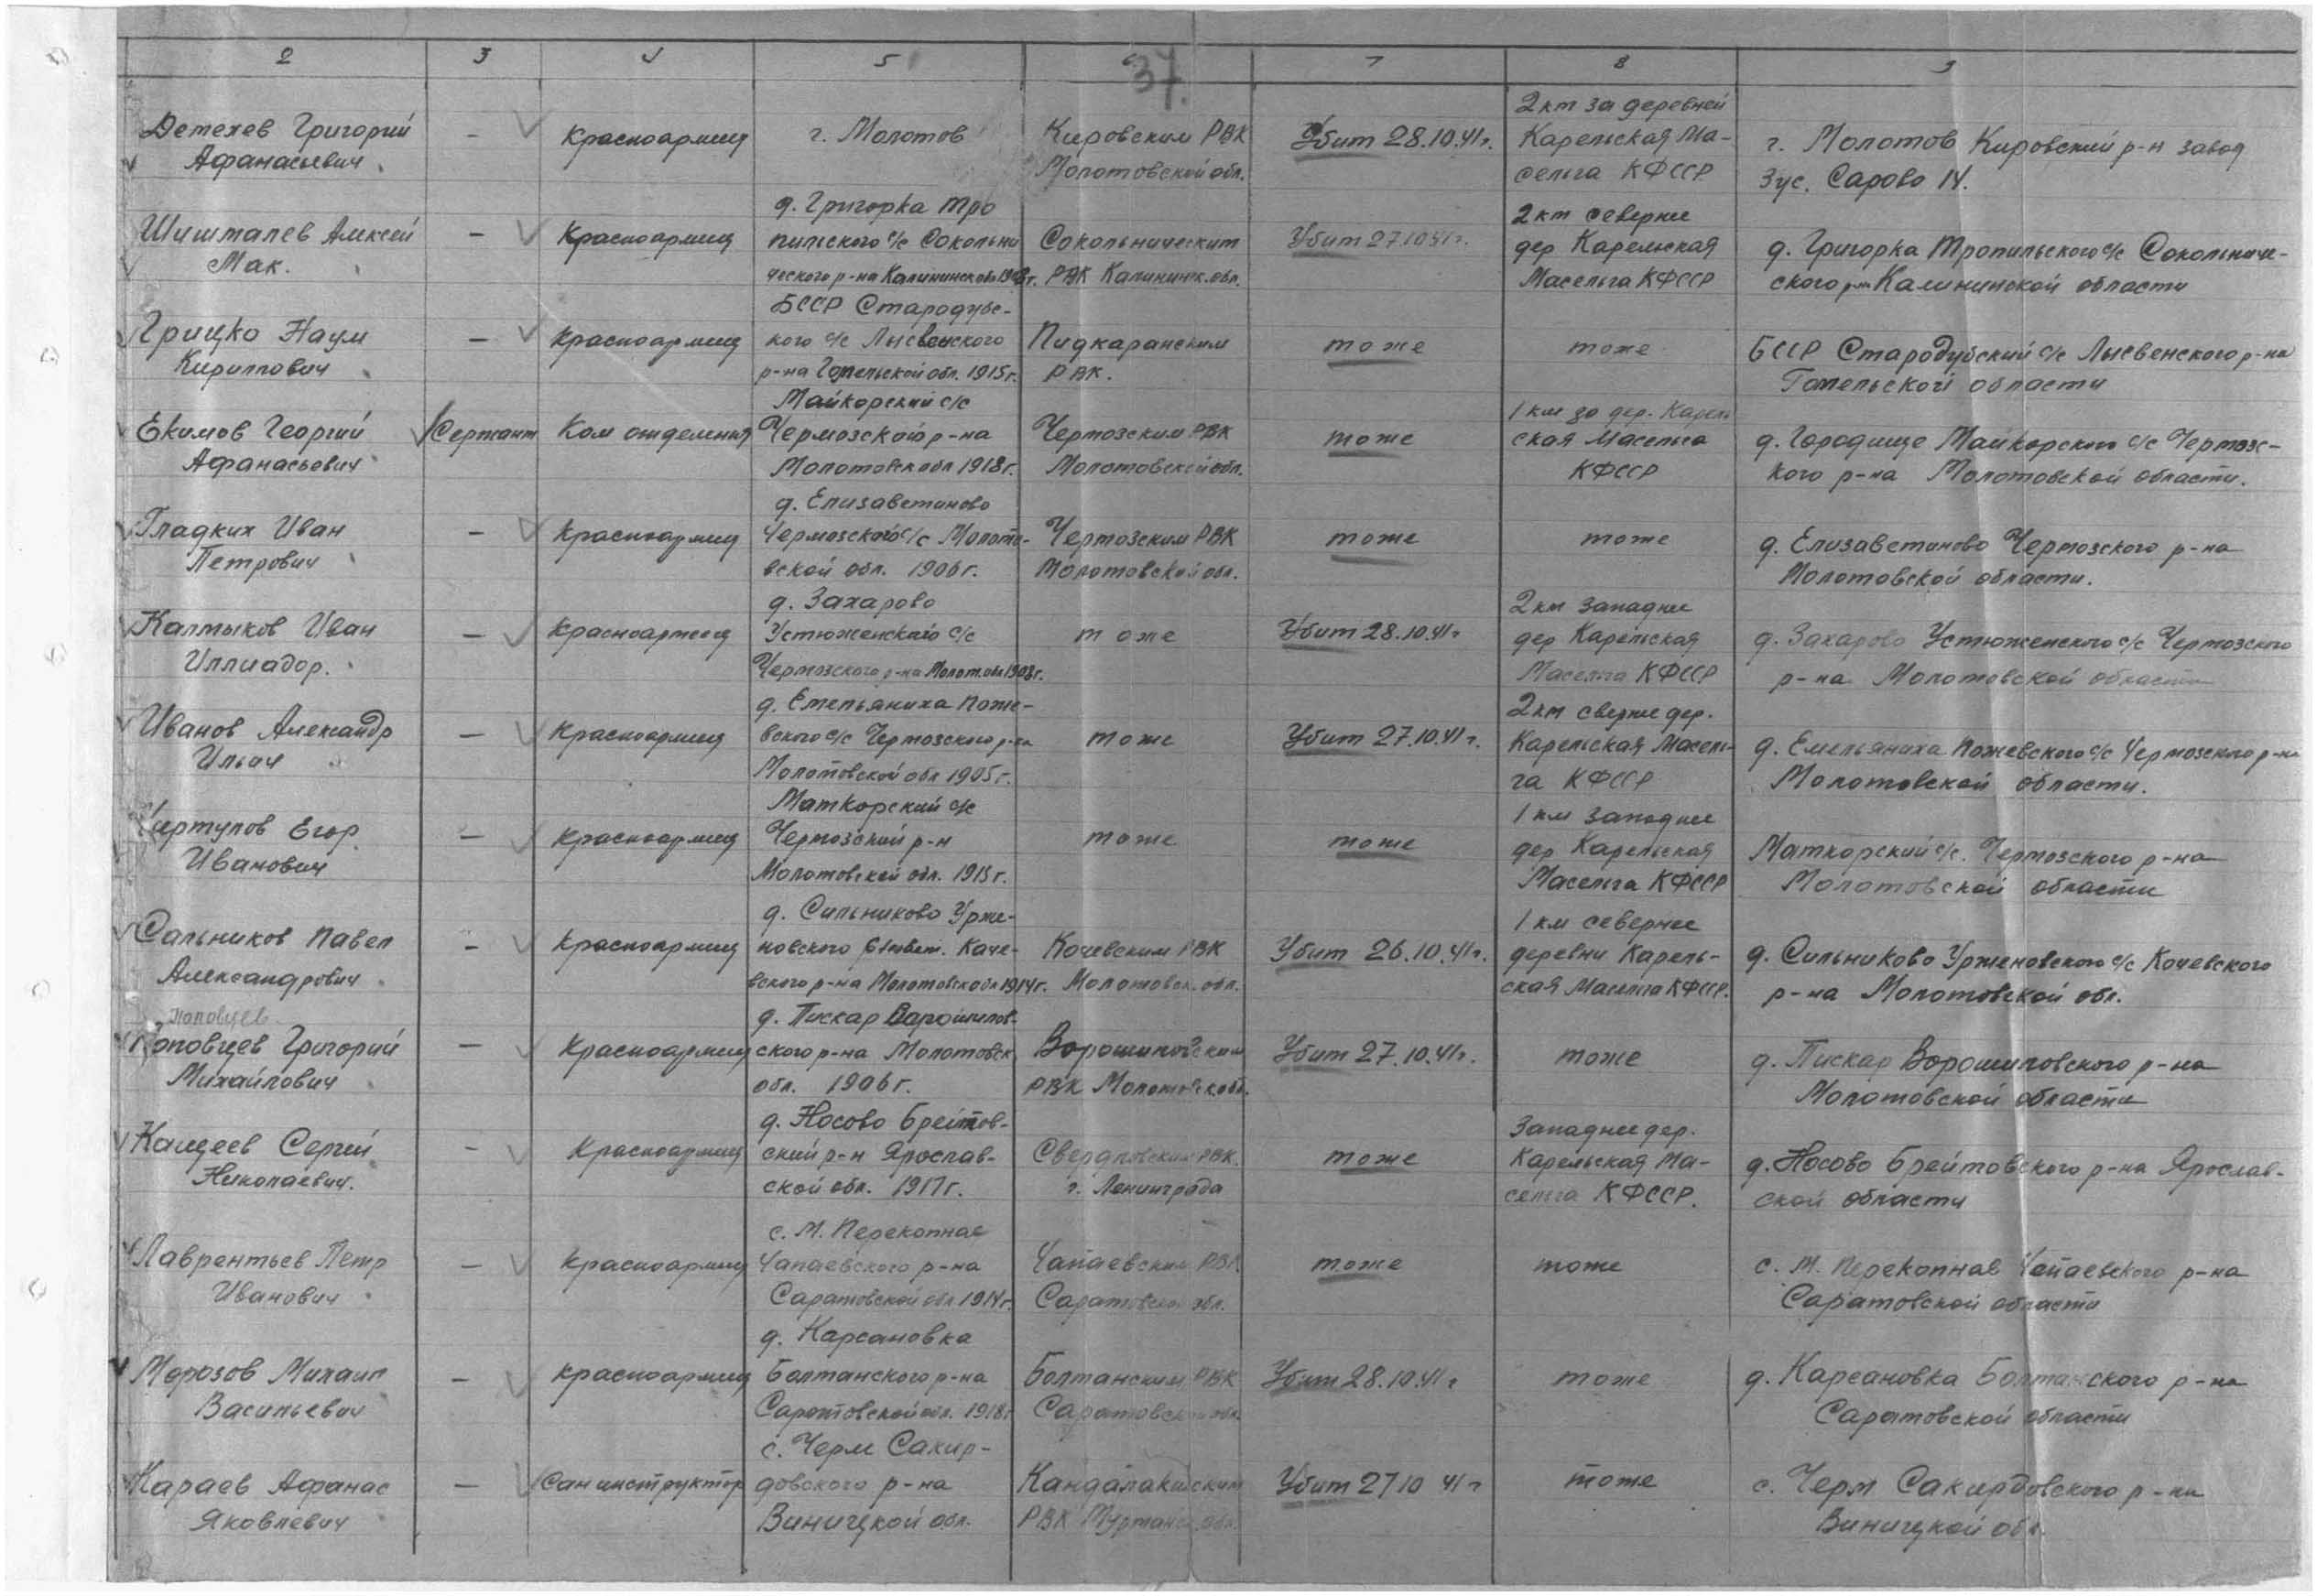 2 3 4 5 6 7 8 9
37.
Детехев Григорий
Афанасьевич
-
Красноармеец
г. Молотов
Кировским РВК
Молотовской обл.
Убит 28.10.41г.
2 км за деревней
Карельская Ма-
сельга КФССР
г. Молотов Кировский р-н завод
Зус. Сарово 14.
Шишталев Алексей
Мак.
-
Красноармеец
д. Григорка Тро
пильского с/с Сокольни
ческого р-на Калининск обл 1908г.
Сокольническим
РВК Калининск. обл.
Убит 27.10.41г.
2 км севернее
дер Карельская
Масельга КФССР
д. Григорка Тропильского с/с Сокольниче-
ского р-на Калининской области
Грицко Наум
Кириллович
-
Красноармеец
БССР Стародубс-
кого с/с Лысвенского
р-на Гомельской обл. 1915г.
Пидкаранским
РВК.
тоже
тоже
БССР Стародубский с/с Лысвенского р-на
Гомельской области
Екимов Георгий
Афанасьевич
Сержант
Ком отделения
Майкорский с/с
Чермозского р-на
Молотовск обл 1918г.
Чермозским РВК
Молотовской обл.
тоже
1 км за дер. Карель
ская Масельга
КФССР
д. Городище Майкорского с/с Чермозс-
кого р-на Молотовской области.
Гладких Иван
Петрович
-
Красноармеец
д. Елизаветиново
Чермозского с/с Молото-
вской обл. 1906г.
Чермозским РВК
Молотовской обл.
тоже
тоже
д. Елизаветиново Чермозского р-на
Молотовской области.
Калмыков Иван
Иллиадор.
-
Красноармеец
д. Захарово
Устюженского с/с
Чермозского р-на Молот. обл 1908г.
тоже
Убит 28.10.41г
2 км западнее
дер Карельская
Масельга КФССР
д. Захарово Устюженского с/с Чермозского
р-на Молотовской области
Иванов Александр
Ильич
-
Красноармеец
д. Емельяниха Поже-
вского с/с Чермозского р-на
Молотовской обл 1905г.
тоже
Убит 27.10.41г.
2 км сверне дер.
Карельская Масель-
га КФССР
д. Емельяниха Пожевского с/с Чермозского р-на
Молотовской области.
Чиртулов Егор
Иванович
-
Красноармеец
Маткорский с/с
Чермозский р-н
Молотовской обл. 1915г.
тоже
тоже
1 км западнее
дер Карельская
Масельга КФССР
Маткорский с/с. Чермозского р-на
Молотовской области
Сальников Павел
Александрович
-
Красноармеец
д. Сильниково Урже-
новского с/совет. Каче-
вского р-на Молотовск обл 1914г.
Кочевским РВК
Молотовск. обл.
Убит 26.10.41г.
1 км севернее
деревни Карель-
ская Масельга КФССР.
д. Сильниково Урженовского с/с Кочевского
р-на Молотовской обл.
Поповцев
Поповцев Григорий
Михайлович
-
Красноармеец
д. Пискар Ворошилов-
ского р-на Молотовск
обл. 1906г.
Ворошиловским
РВК Молотовск. обл.
Убит 27.10.41г.
тоже
д. Пискар Ворошиловского р-на
Молотовской области
Кащеев Сергей
Николаевич.
-
Красноармеец
д. Носово Брейтов-
ский р-н Ярослав-
ской обл. 1917г.
Свердловским РВК.
г. Ленинграда
тоже
Западнее дер.
Карельская Ма-
сельга КФССР.
д. Носово Брейтовского р-на Ярослав-
ской области
Лаврентьев Петр
Иванович
-
Красноармеец
с. М. Перекопная
Чапаевского р-на
Саратовской обл 1914г.
Чапаевским РВК
Саратовской обл.
тоже
тоже
с. М. Перекопная Чапаевского р-на
Саратовской области
Морозов Михаил
Васильевич
-
Красноармеец
д. Карсановка
Болтанского р-на
Саратовской обл. 1918г
Болтанским РВК
Саратовской обл.
Убит 28.10.41г
тоже
д. Карсановка Болтанского р-на
Саратовской области
Караев Афанас
Яковлевич
-
Санинструктор
с. Черм Сакир-
довского р-на
Виницкой обл.
Кандалакшским
РВК Мурманск. обл.
Убит 27 10 41г
тоже
с. Черм Сакирдовского р-на
Виницкой обл.